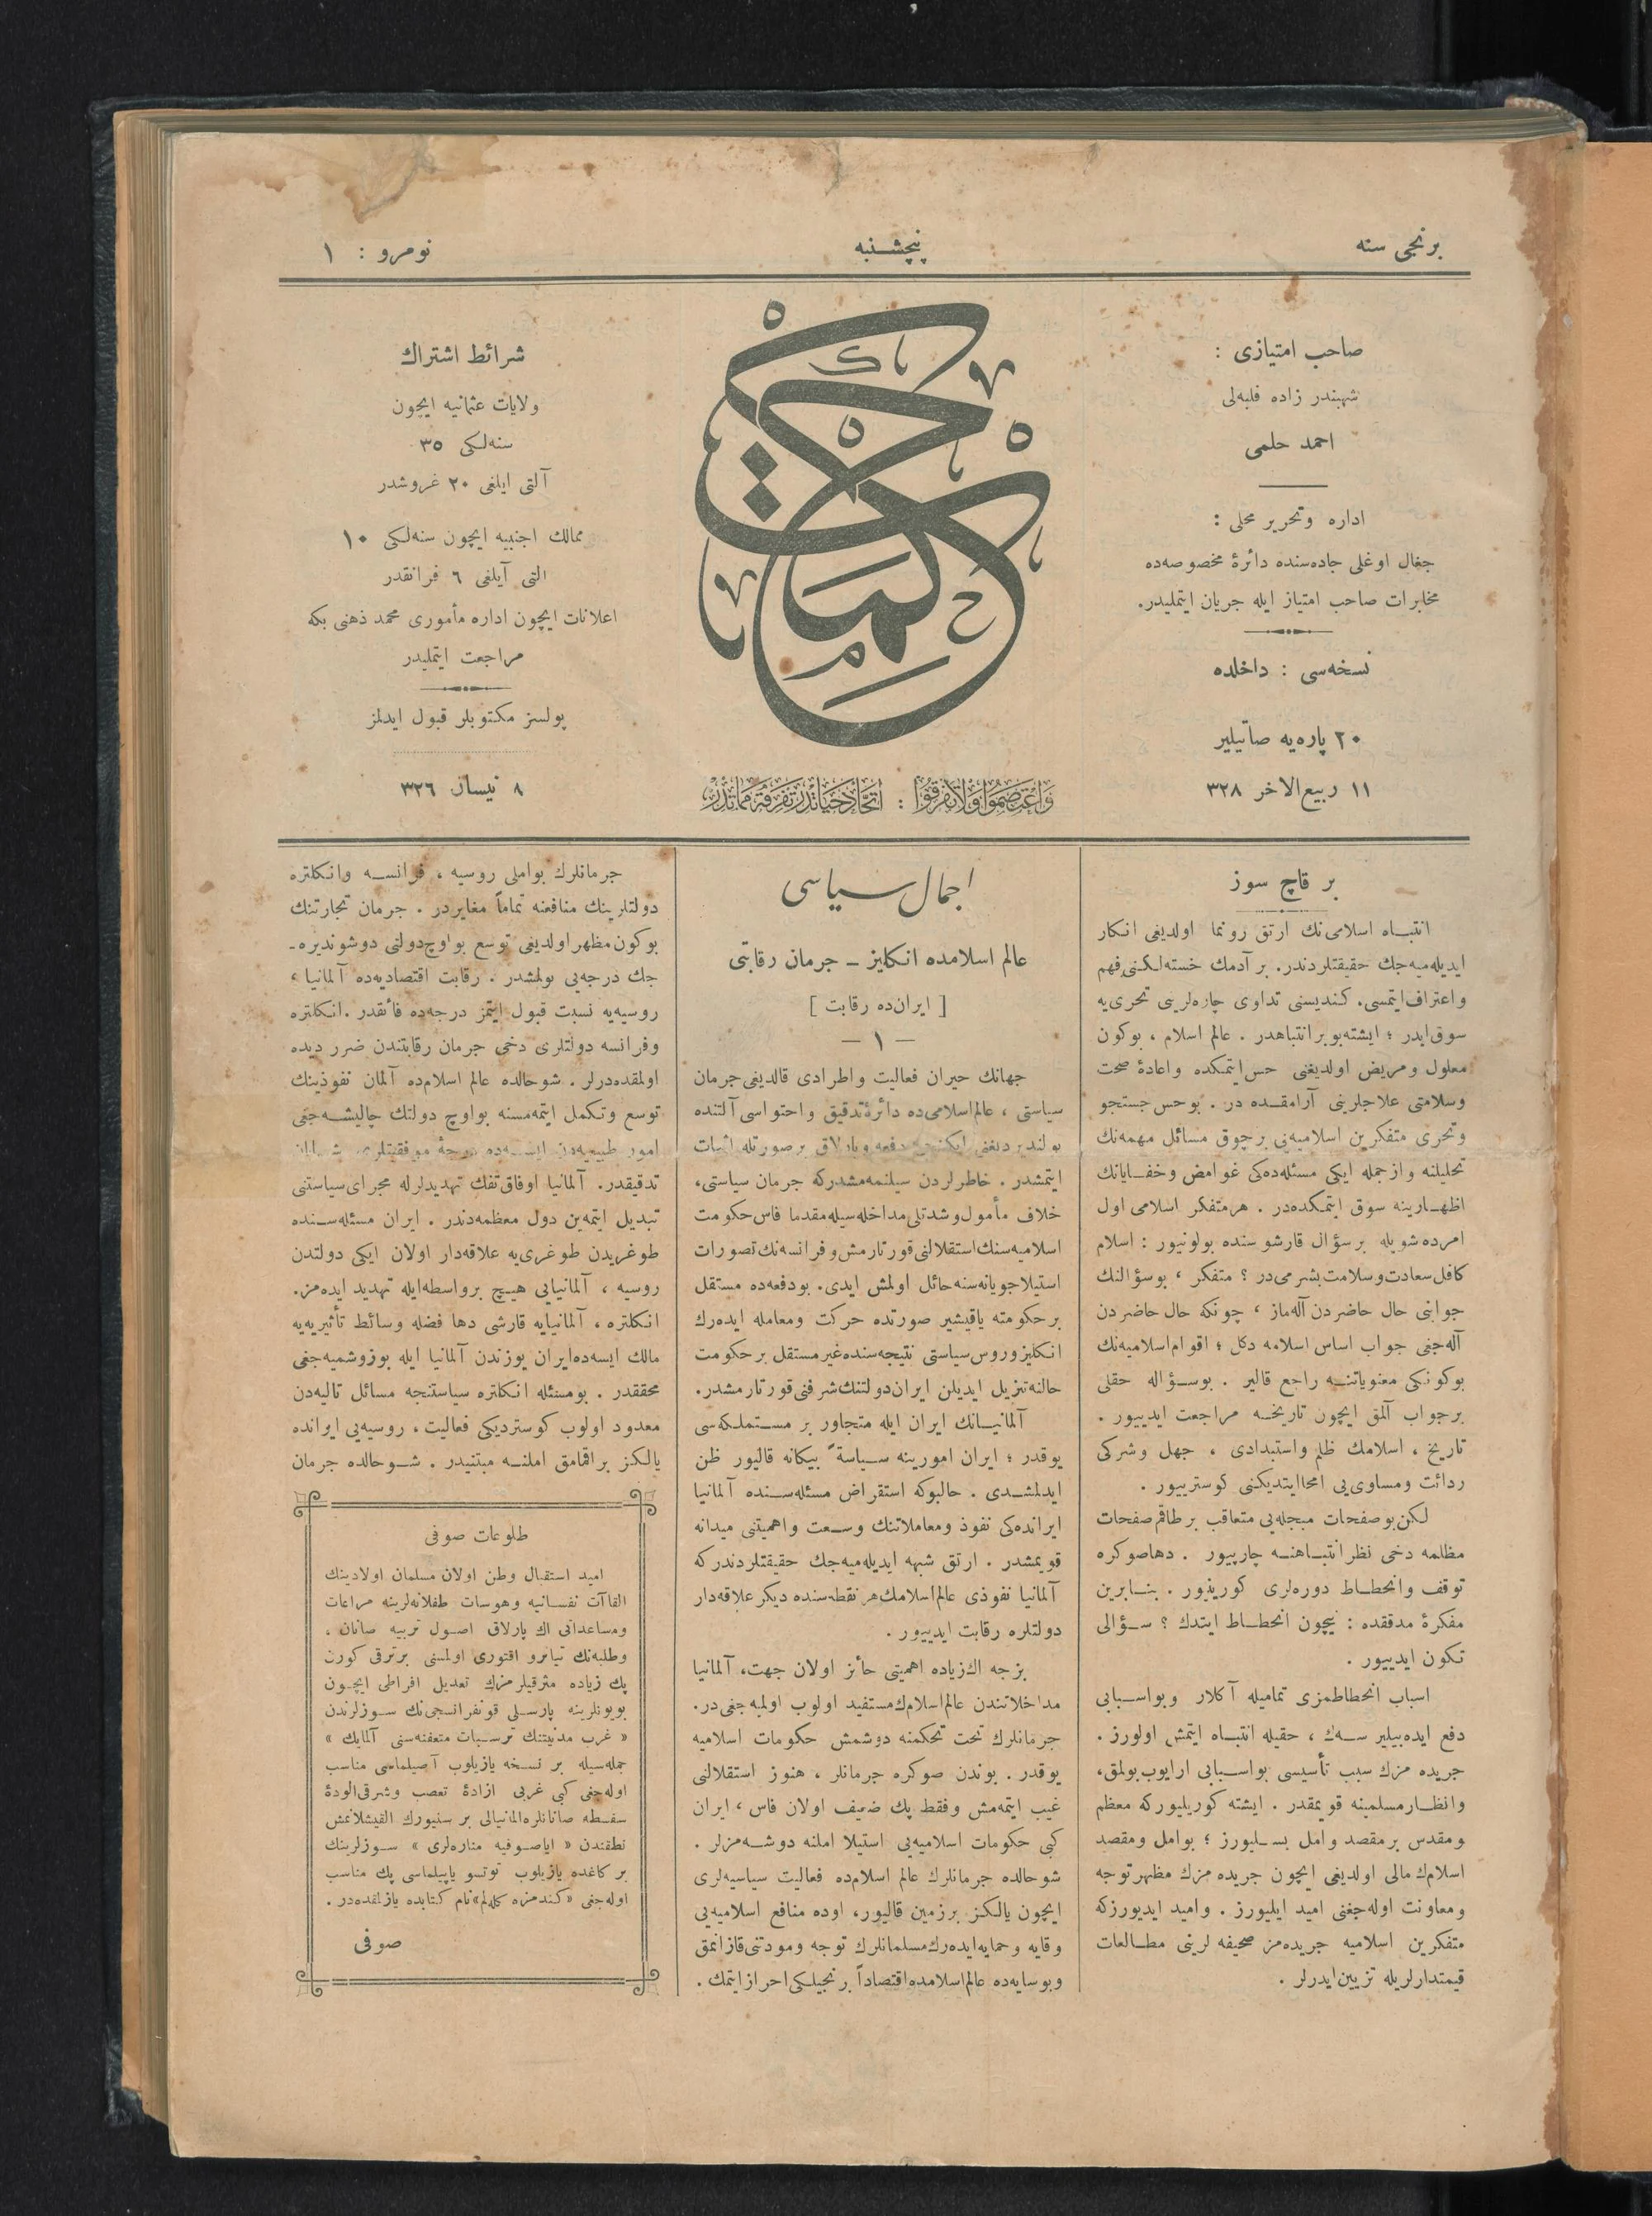 برنجی سنه
پنچشنبه
نومرو : ١
صاحب امتیازی :
شهبندر زاده فلبه‌لی
احمد حلمی
اداره وتحریر محلی :
جغال اوغلی جاده‌سنده دائرۀ مخصوصه‌ده
مخابرات صاحب امتیاز ایله جریان ایتملیدر.
نسخه‌سی : داخلده
٢٠ پاره‌یه صاتیلیر
١١ ربیع‌الاخر ٣٢٨
حكمت
وَاعْتَصِمُوا وَلَا تَفَرَّقُوا : اتحاد حیاتدر تفرقه مماتدر
شرائط اشتراك
ولایات عثمانیه ایچون
سنه‌لكی ٣٥
آلتی ایلغی ٢٠ غروشدر
ممالك اجنبیه ایچون سنه‌لكی ١٠
التی آیلغی ٦ فرانقدر
اعلانات ایچون اداره مأموری محمد ذهنی بكه
مراجعت ایتملیدر
پولسز مكتوبلر قبول ایدلمز
٨ نیسان ٣٢٦
بر قاچ سوز
انتبــاه اسلامی‌نك ارتق رونما اولدیغی انكار
ایدیله‌میه‌جك حقیقتلردندر. بر آدمك خسته‌لـكنی فهم
واعتراف ایتمسی. كندیسنی تداوی چاره‌لرینی تحری‌یه
سوق ایدر ؛ ایشته بو بر انتباهدر . عالم اسلام ، بوكون
معلول ومریض اولدیغنی حس ایتمكده واعادۀ صحت
وسلامتی علاجلرینی آرامقــده در . بوحس جستجو
وتحری متفكرین اسلامیه‌یی برچوق مسائل مهمه‌نك
تحلیلنه وازجمله ایكی مسئله‌ده‌كی غوامض وخفــایانك
اظهــارینه سوق ایتمـكده‌در . هر متفكر اسلامی اول
امرده شویله بر سؤال قارشوسنده بولونیور : اسلام
كافل سعادت وسلامت بشر می‌در ؟ متفكر ، بوسؤالنك
جوابنی حال حاضردن آله‌ماز ، چونكه حال حاضردن
آله‌جغی جواب اساس اسلامه دكل ؛ اقوام اسلامیه‌نك
بوكونكی معنویاتنــه راجع قالیر . بوســؤاله حقلی
برجواب آلمق ایچون تاریخــه مراجعت ایدییور .
تاریخ ، اسلامك ظلم واستبدادی ، جهل وشركی
ردائت ومساوی‌یی امحا ایتدیكنی كوستریبور .
لـكن بو صفحات مبجله‌یی متعاقب بر طاقم صفحات
مظلمه دخی نظر انتبــاهنــه چارپیور . دها صوكره
توقف وانحطــاط دوره‌لری كورینیور . بنــابرین
مفكرۀ مدققده : نیچون انحطــاط ایتدك ؟ ســؤالی
تكون ایدییور .
اسباب انحطاطمزی تمامیله آكلار وبواســبابی
دفع ایده‌بیلیر ســه‌ك ، حقیله انتبــاه ایتمش اولورز .
جریده مزك سبب تأسیسی بواســبابی ارایوب بولمق،
وانظــار مسلمینه قویمقدر . ایشته كوریلیوركه معظم
ومقدس بر مقصد وامل بســلیورز ؛ بوامل ومقصد
اسلامك مالی اولدیغی ایچون جریده مزك مظهر توجه
ومعاونت اوله‌جغنی امید ایلیورز . وامید ایدیورزكه
متفكرین اسلامیه جریده‌مز صحیفه لرینی مطــالعات
قیمتدارلریله تزیین ایدرلر .
اجمال سیاسی
عالم اسلامده انكلیز ـ جرمان رقابتی
[ ایران‌ده رقابت ]
— ١ —
جهانك حیران فعالیت واطرادی قالدیغی جرمان
سیاستی ، عالم‌اسلامی‌ده دائرۀ تدقیق واحتواسی آلتنده
بولندیردیغنی ایكنجی دفعه وپارلاق برصورتله اثبات
ایتمشدر . خاطرلردن سیلنمه‌مشدركه جرمان سیاستی،
خلاف مأمول وشدتلی مداخله‌سیله مقدما فاس حكومت
اسلامیه‌سنك استقلالنی قورتارمش و فرانسه‌نك تصورات
استیلاجویانه‌سنه حائل اولمش ایدی. بودفعه‌ده مستقل
بر حكومته یاقیشیر صورتده حركت ومعامله ایده‌رك
انكلیز وروس سیاستی نتیجه‌سنده غیر مستقل بر حكومت
حالنه تنزیل ایدیلن ایران دولتنك شرفنی قورتارمشدر.
آلمانیــانك ایران ایله متجاور بر مســتملـكه‌سی
یوقدر ؛ ایران امورینه ســیاسةً بیكانه قالیور ظن
ایدلمشــدی . حالبوكه استقراض مسئله‌ســنده آلمانیا
ایرانده‌كی نفوذ ومعاملاتنك وســعت واهمیتنی میدانه
قویمشدر . ارتق شبهه ایدیله‌میه‌جك حقیقتلردندركه
آلمانیا نفوذی عالم‌اسلامك هر نقطه‌سنده دیكر علاقه‌دار
دولتلره رقابت ایدییور .
بزجه اك زیاده اهمیتی حائز اولان جهت، آلمانیا
مداخلاتندن عالم‌اسلامك مستفید اولوب اولمیه‌جغی‌در.
جرمانلرك تحت تحكمنه دوشمش حكومات اسلامیه
یوقدر . بوندن صوكره جرمانلر ، هنوز استقلالنی
غیب ایتمه‌مش وفقط پك ضعیف اولان فاس ، ایران
كبی حكومات اسلامیه‌یی استیلا املنه دوشــه‌مزلر .
شوحالده جرمانلرك عالم اسلام‌ده فعالیت سیاسیه‌لری
ایچون یالكز برزمین قالیور، اوده منافع اسلامیه‌یی
وقایه وحمایه ایده‌رك مسلمانلرك توجه ومودتنی قازانمق
وبوسایه‌ده عالم‌اسلامده اقتصاداً برنجیلـكی احراز ایتمك .
جرمانلرك بواملی روسیه ، فرانســه وانكلتره
دولتلرینك منافعنه تماماً مغایردر . جرمان تجارتنك
بوكون مظهر اولدیغی توسع بو اوچ دولتی دوشوندیره ـ
جك درجه‌یی بولمشدر . رقابت اقتصادیه‌ده آلمانیا ،
روسیه‌یه نسبت قبول ایتمز درجه‌ده فائقدر . انكلتره
وفرانسه دولتلری دخی جرمان رقابتندن ضرر دیده
اولمقده‌درلر . شو حالده عالم اسلام‌ده آلمان نفوذینك
توسع وتـكمل ایتمه‌مسنه بواوچ دولتك چالیشــه‌جغی
امور طبیعیه‌دن ایســه‌ده درجۀ موفقیتلری شــایان
تدقیقدر. آلمانیا اوفاق تفك تهدیدلرله مجرای سیاستنی
تبدیل ایتمه‌ین دول معظمه‌دندر . ایران مسئله‌ســنده
طوغریدن طوغری‌یه علاقه‌دار اولان ایكی دولتدن
روسیه ، آلمانیایی هیــچ برواسطه‌ایله تهدید ایده‌مز.
انكلتره ، آلمانیایه قارشی دها فضله وسائط تأثیریه‌یه
مالك ایسه‌ده ایران یوزندن آلمانیا ایله بوزوشمیه‌جغی
محققدر . بومسئله انكلتره سیاستنجه مسائل تالیه‌دن
معدود اولوب كوستردیكی فعالیت ، روسیه‌یی ایرانده
یالـكز براقمامق املنــه مبتنیدر . شــوحالده جرمان
طلوعات صوفی
امید استقبال وطن اولان مسلمان اولادینك
القاآت نفســانیه وهوسات طفلانه‌لرینه مراعات
ومساعداتی اك پارلاق اصــول تربیه صانان ،
وطلبه‌نك تیاترو اقتوری اولمسنی برترقی كورن
پك زیاده مترقیلرمزك تعدیل افراطی ایچــون
بویونلرینه پارســلی قونفرانسجی‌نك ســوزلرندن
« غرب مدنیتنك ترســبات متعفنه‌سنی آلمایك »
جمله‌سیله بر نسـخه یازیلوب آصیلماسی مناسب
اوله‌جغی كبی غربی ازادۀ تعصب وشرقی‌الودۀ
سفسطه صانانلره المانیالی بر سنیورك
نطقندن « ایاصــوفیه مناره‌لری » ســوزلرینك
بر كاغده یازیلوب توتسو یاپیلماسی پك مناسب
اوله‌جغی «كندمزه كله‌لم» نام كتابده یازلمقده‌در .
صوفی